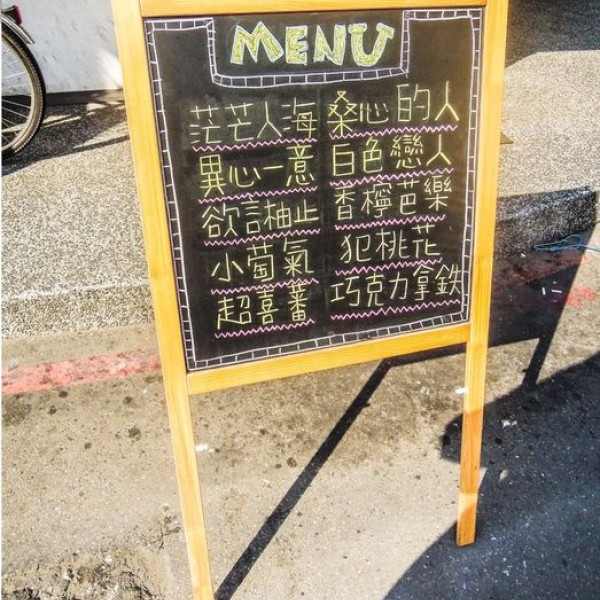 MENU
茫茫人海 桑心的人
異心一意 白色戀人
欲言柚止 香檸芭樂
小萄氣 犯桃花
超喜蕃 巧克力拿鐵